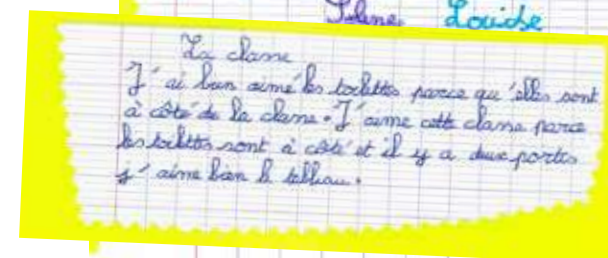 Louise
La classe
J'ai bien aimé les toilettes parce qu'elles sont
à côté de la classe. J'aime cette classe parce
les toilettes sont à côté et il y a deux portes
j'aime bien le tableau.